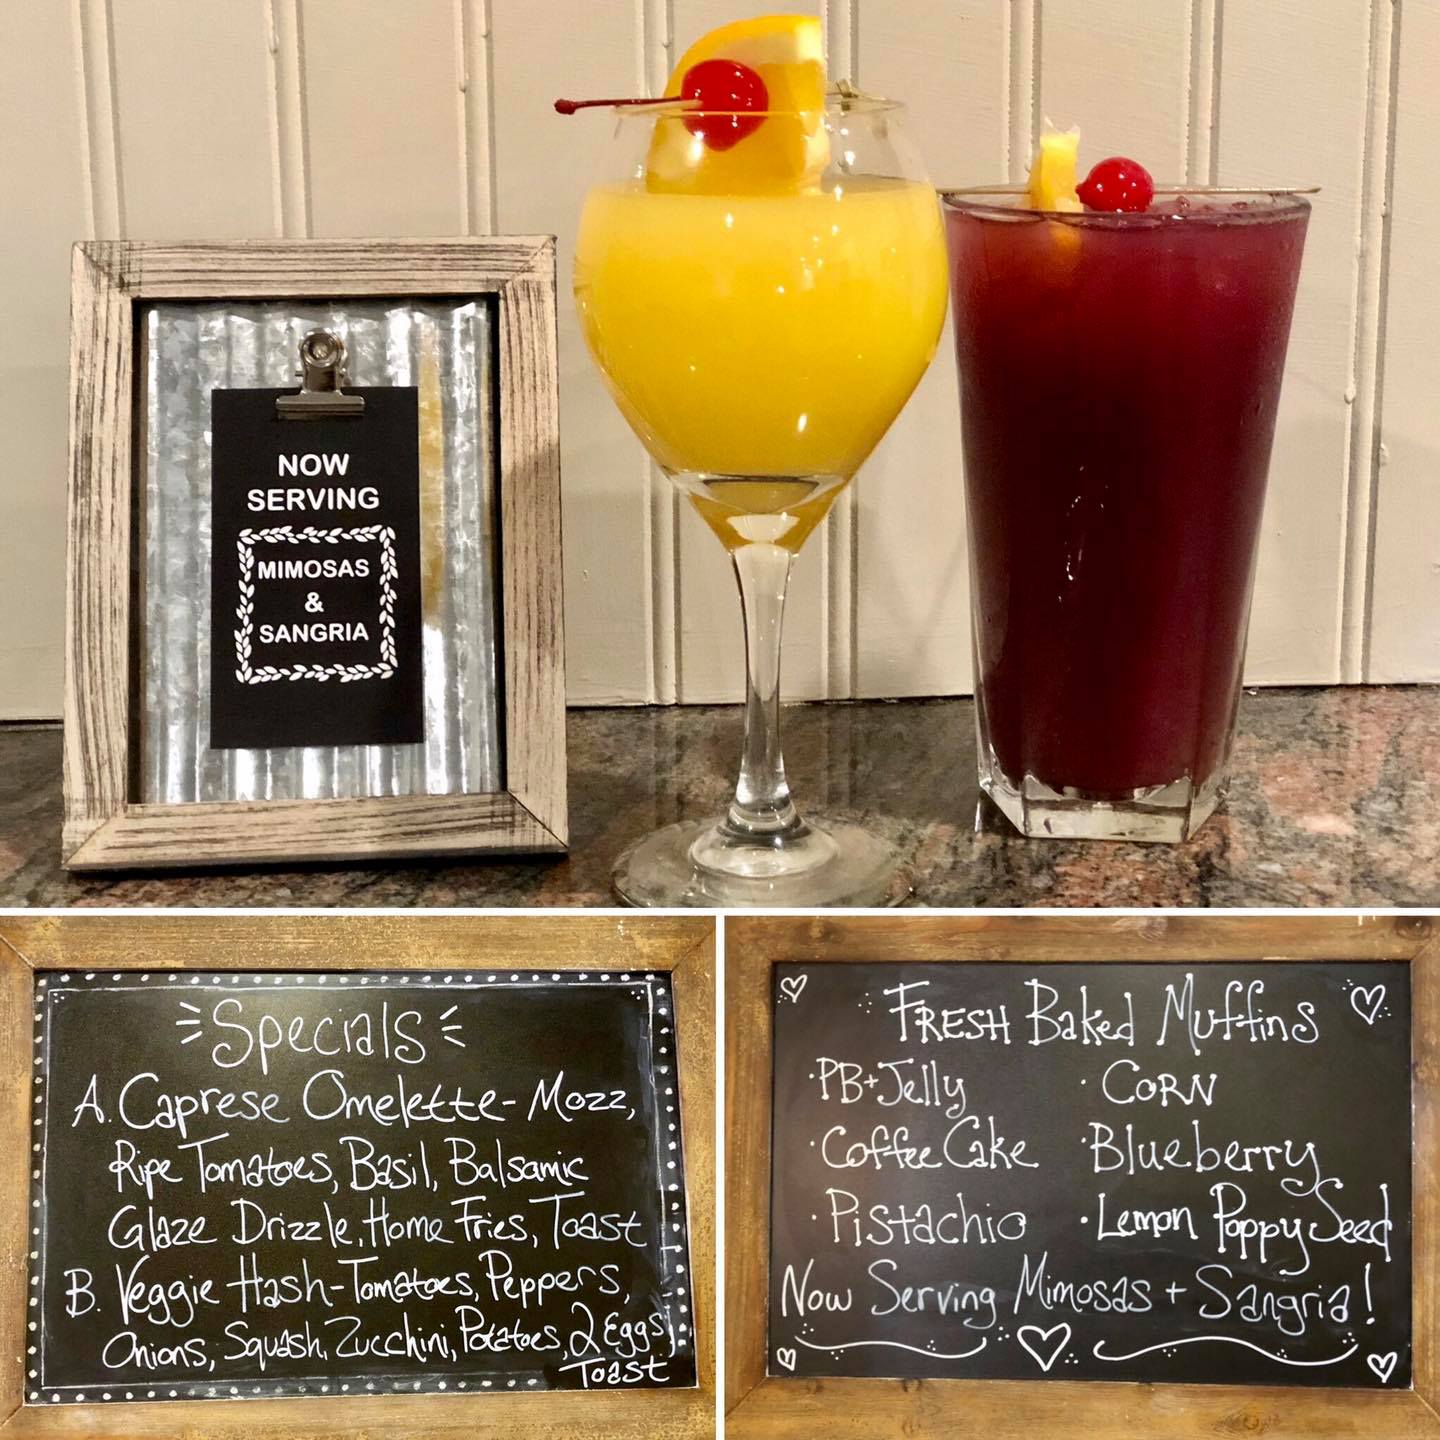 NOW
SERVING
MIMOSAS
&
SANGRIA
Specials
A. Caprese Omelette- Mozz,
Ripe Tomatoes, Basil, Balsamic
Glaze Drizzle, Home Fries, Toast
B. Veggie Hash-Tomatoes, Peppers,
Onions, Squash, Zucchini, Potatoes, 2 Eggs,
Toast
FRESH Baked Muffins
·PB+Jelly
·Coffee Cake
·Pistachio
·CORN
·Blueberry
·Lemon Poppy Seed
Now Serving Mimosas + Sangria!